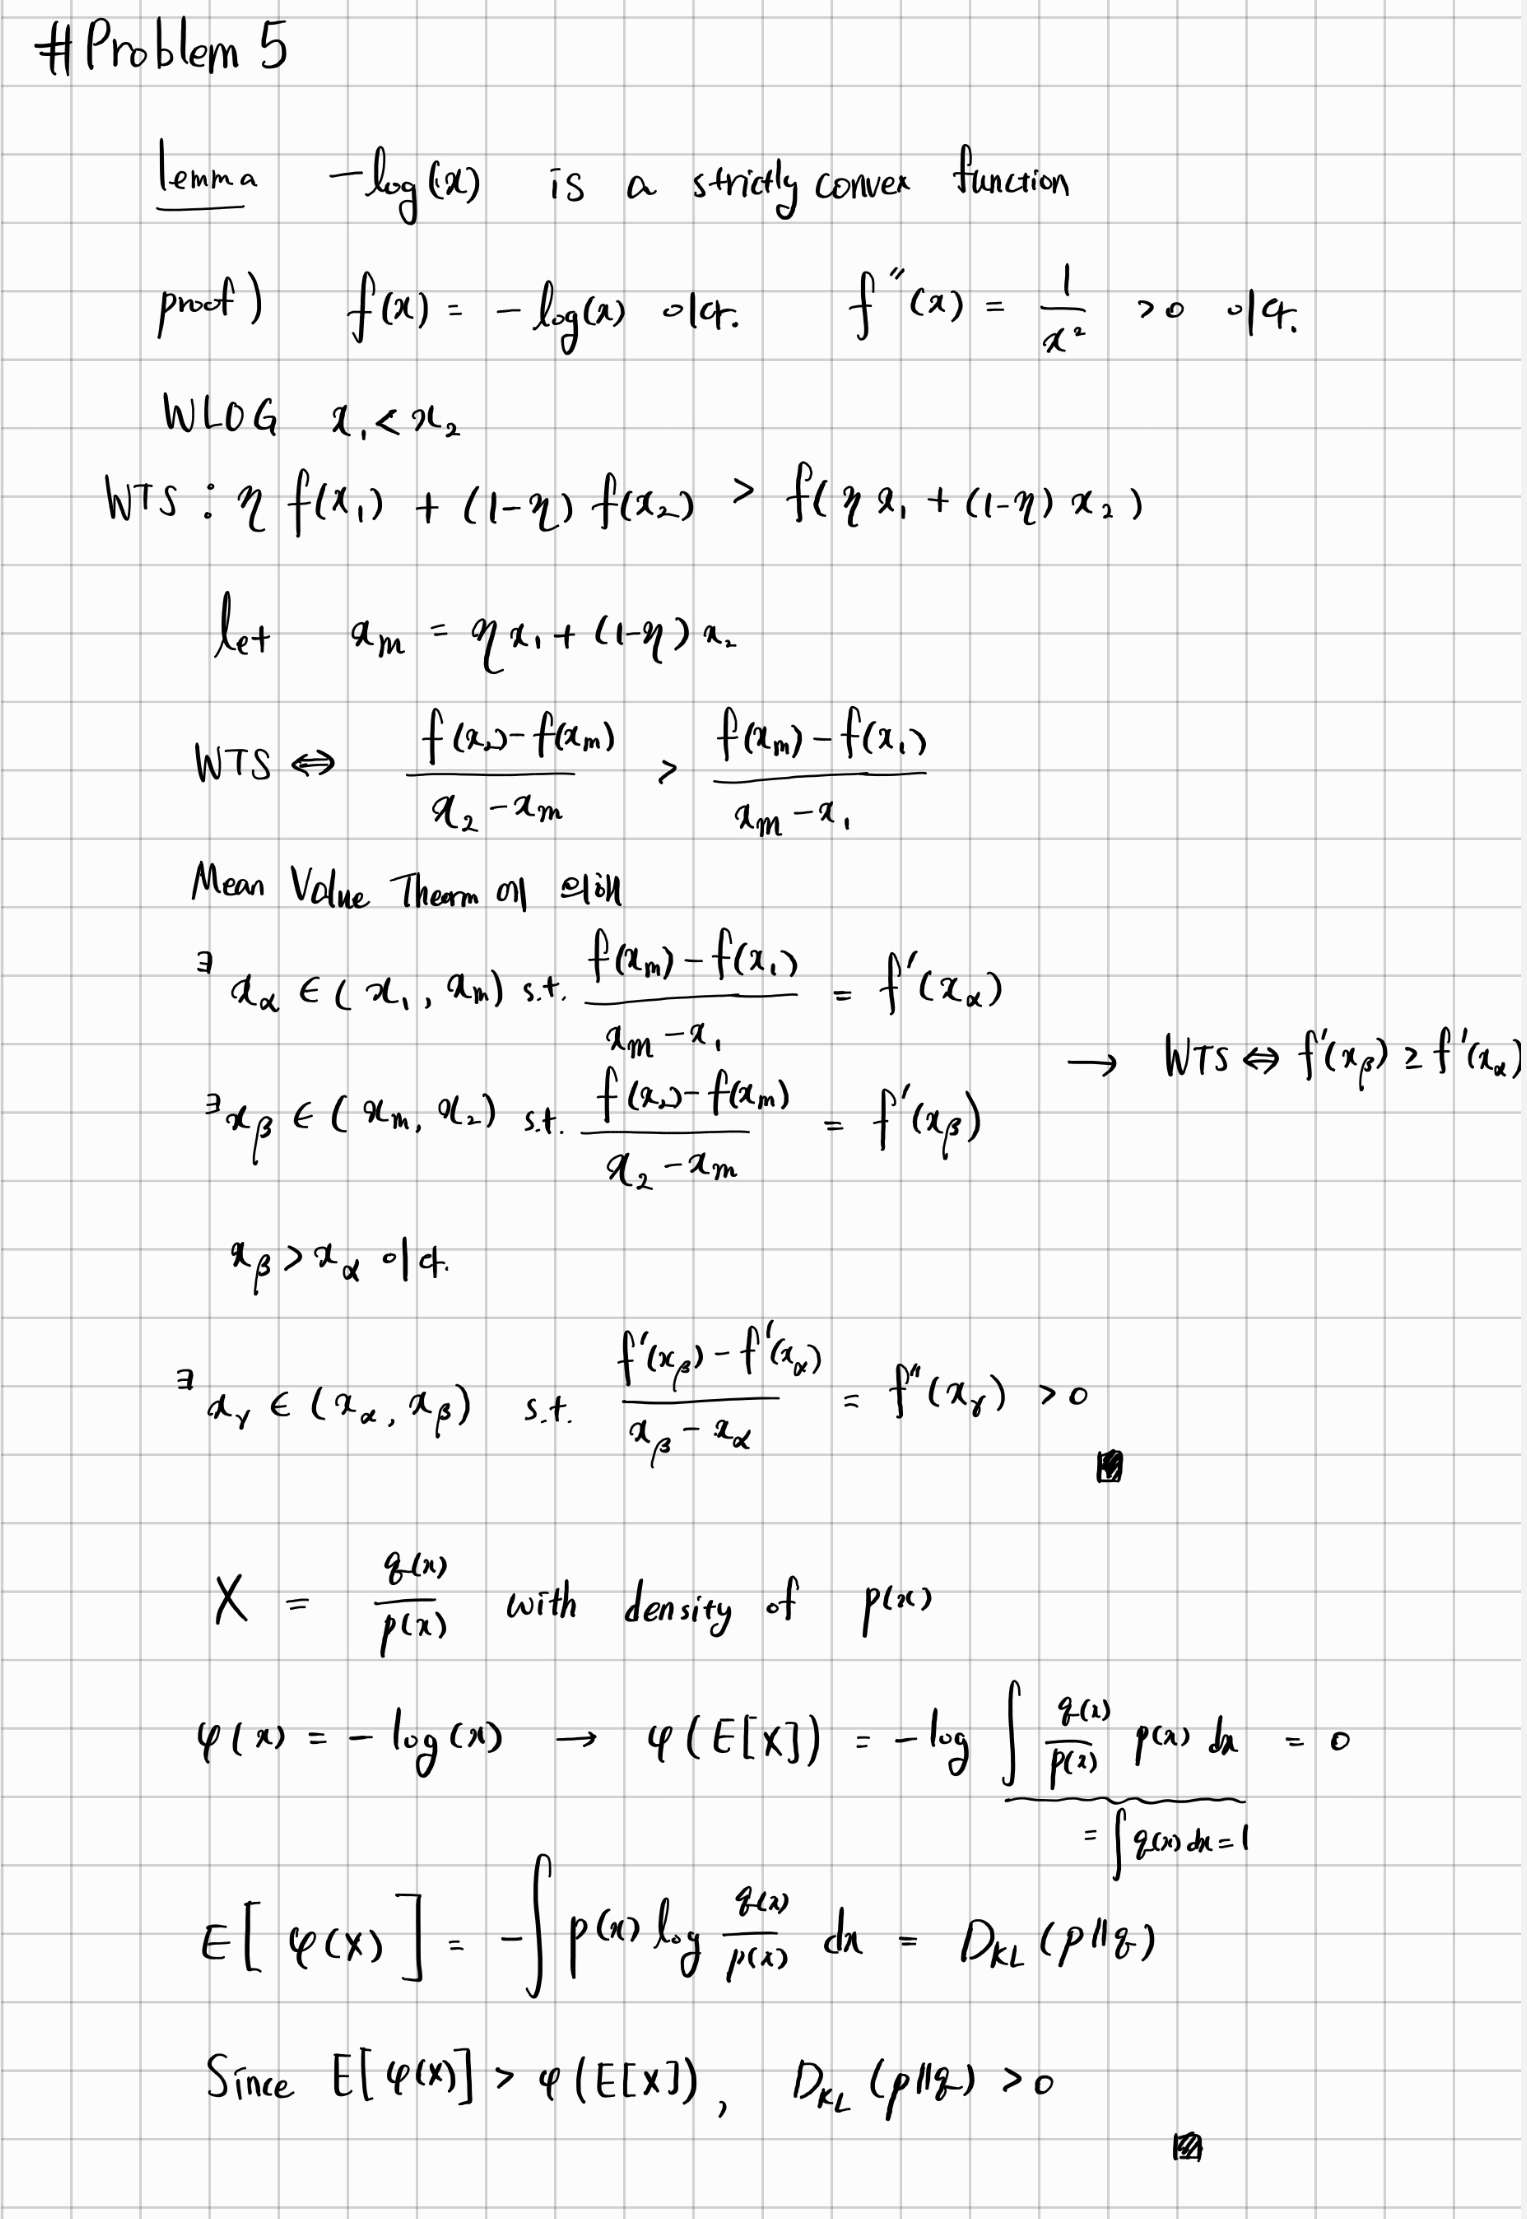 #Problem 5
Lemma -log(x) is a strictly convex function
proof) f(x) = -log(x) 이다. f''(x) = 1/x² >0 이다.
WLOG x₁<x₂
WTS : η f(x₁) + (1-η) f(x₂) > f(η x₁ + (1-η) x₂)
let x_m = η x₁ + (1-η) x₂
WTS ⇔ (f(x₂)-f(x_m))/(x₂-x_m) > (f(x_m)-f(x₁))/(x_m-x₁)
Mean Value Therm에 의해
∃ x_α ∈ (x₁, x_m) s.t. (f(x_m)-f(x₁))/(x_m-x₁) = f'(x_α)
→ WTS ⇔ f'(x_β) ≥ f'(x_α)
∃ x_β ∈ (x_m, x₂) s.t. (f(x₂)-f(x_m))/(x₂-x_m) = f'(x_β)
x_β > x_α 이다.
∃ x_γ ∈ (x_α, x_β) s.t. (f'(x_β)-f'(x_α))/(x_β-x_α) = f''(x_γ) >0
X = q(x)/p(x) with density of p(x)
φ(x) = -log(x) → φ(E[X]) = -log ∫ q(x)/p(x) p(x) dx = 0
= ∫ q(x) dx = 1
E[φ(X)] = -∫ p(x) log q(x)/p(x) dx = D_KL (p||q)
Since E[φ(X)] > φ(E[X]), D_KL (p||q) >0